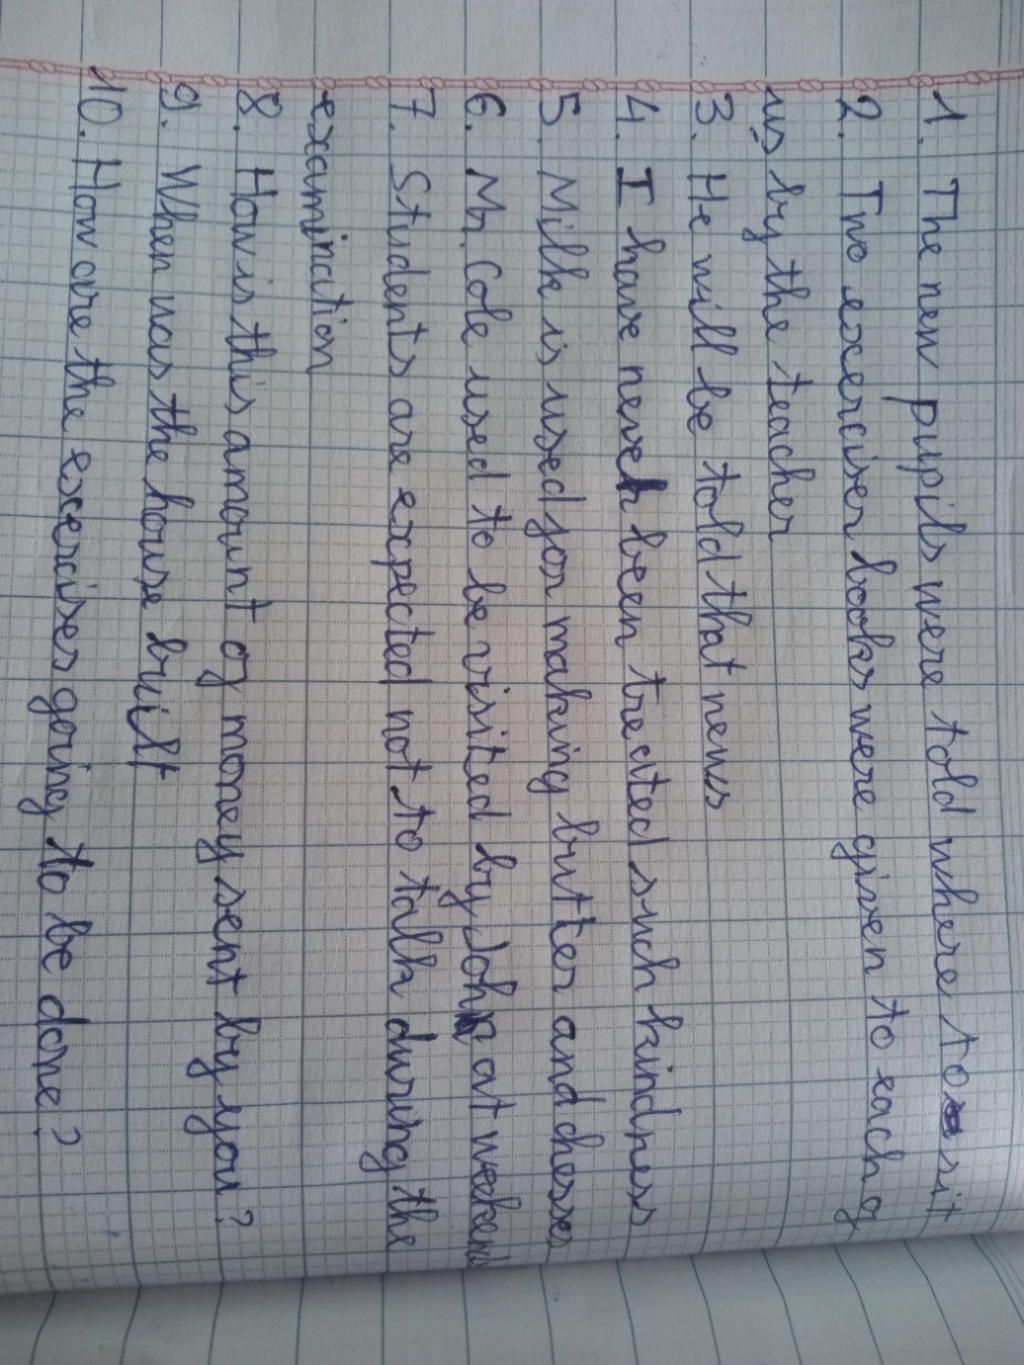 1. The new pupils were told where to sit
2. Two exerciser books were given to each g
us by the teacher
3. He will be told that news
4. I have never been treated such kindness
5. Milk is used for making butter and cheeses
6. Mr Cole used to be visited by John at weekend
7. Students are expected not to talk during the
examination
8. How is this amount of money sent by you?
9. When was the house built
10. How are the exercises going to be done?